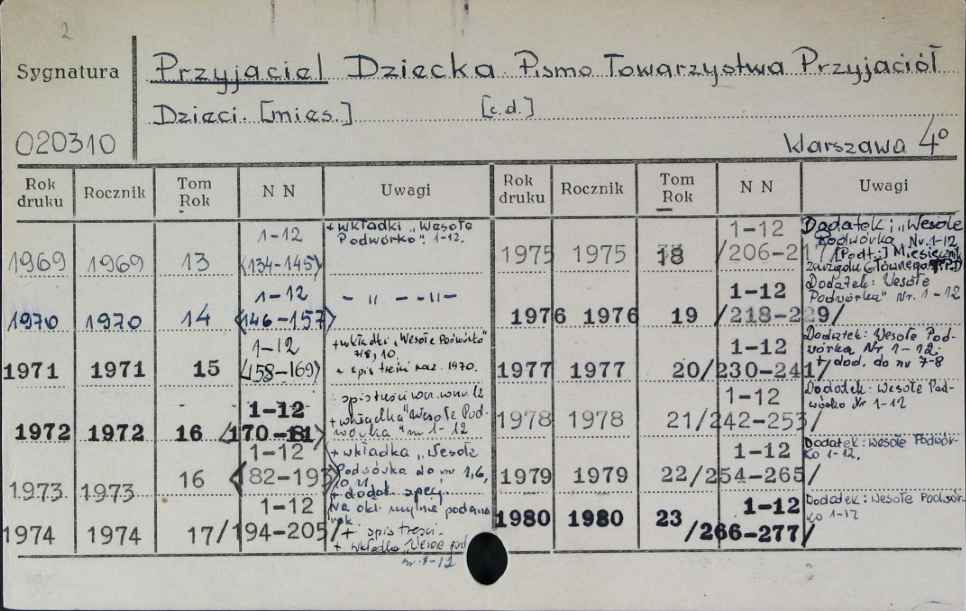 2
Sygnatura
Przyjaciel Dziecka Pismo Towarzystwa Przyjaciół
Dzieci. [mies.] [c.d.]
020310
Warszawa 4º
Rok druku Rocznik Tom Rok N N Uwagi
1969 1969 13 1-12 <134-145> + wkładki "Wesołe
Podwórko". 1-12.
1970 1970 14 1-12 <146-157> - " - - " -
1971 1971 15 1-12 <158-169> + wkładki "Wesołe Podwórko"
7/8, 10.
spis treści 1970.
1972 1972 16 1-12 <170-81> spis treści
"Wesołe Pod-
wórko" nr 1-12
1973 1973 16 1-12 <82-193> + wkładka "Wesołe
Podwórko do nr 1,6,
+ dodat. spec.
Na okł. mylnie podano
rok
1974 1974 17 1-12 /194-205/ + spis treści.
+ wkładka
nr 1-12
Rok druku Rocznik Tom Rok N N Uwagi
1975 1975 18 1-12 /206-217/ Dodatek: "Wesołe
Podwórko Nr. 1-12
[Podt:] Miesięcznik
Zarządu Głównego TPD
1976 1976 19 1-12 /218-229/ Dodatek: Wesołe
Podwórko" Nr. 1-12
1977 1977 20 1-12 /230-241/ Dodatek: Wesołe Pod-
wórko Nr 1-12.
dod. do nr 7-8
1978 1978 21 1-12 /242-253/ Dodatek: Wesołe Pod-
wórko Nr 1-12
1979 1979 22 1-12 /254-265/ Dodatek: Wesołe Podwór-
ko 1-12.
1980 1980 23 1-12 /266-277/ Dodatek: Wesołe Podwór-
ko 1-12